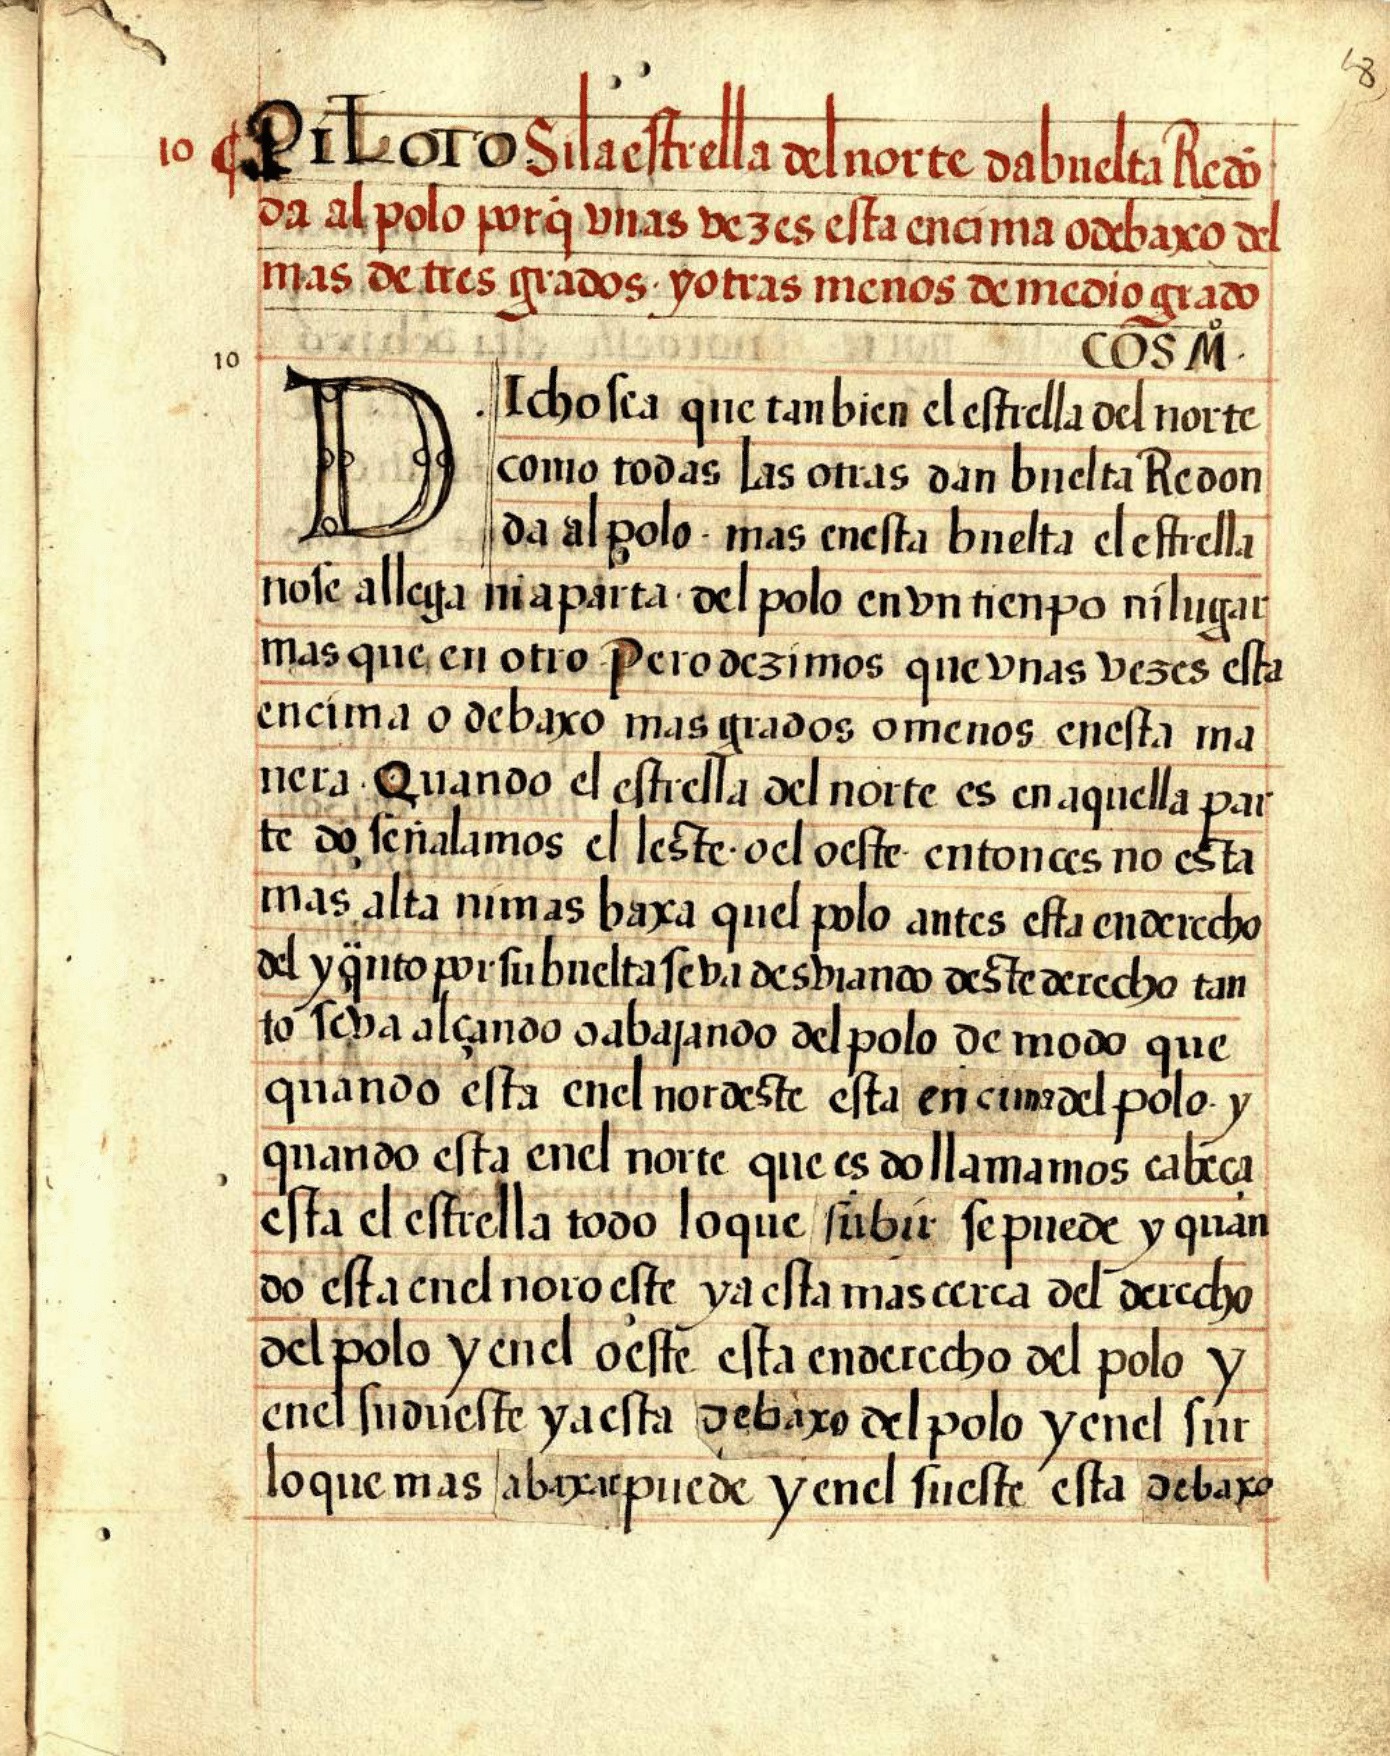 48
10 ¶ PILOTO Si la estrella del norte da buelta Redō
da al polo porq̄ vnas vezes esta encima o debaxo del
mas de tres grados · y otras menos de medio grado
COSMº.
10
DIcho sea que tanbien el estrella del norte
como todas las otras dan buelta Redon
da al polo · mas enesta buelta el estrella
nose allega ni aparta · del polo en vn tienpo ni lugar
mas que en otro Pero dezimos que vnas vezes esta
encima o debaxo mas grados o menos enesta ma
nera · Quando el estrella del norte es en aquella par
te do señalamos el leste · o el oeste · entonces no esta
mas alta ni mas baxa quel polo antes esta enderecho
del y q̄nto por su buelta se va desviando deste derecho tan
to seva alçando o abajando del polo de modo que
quando esta enel nordeste esta encima del polo · y
quando esta enel norte que es do llamamos cabeça
esta el estrella todo lo que subir se puede y quan
do esta enel noroeste ya esta mas cerca del derecho
del polo y enel oeste esta enderecho del polo y
enel sudueste ya esta debaxo del polo y enel sur
lo que mas abaxar puede y enel sueste esta debaxo